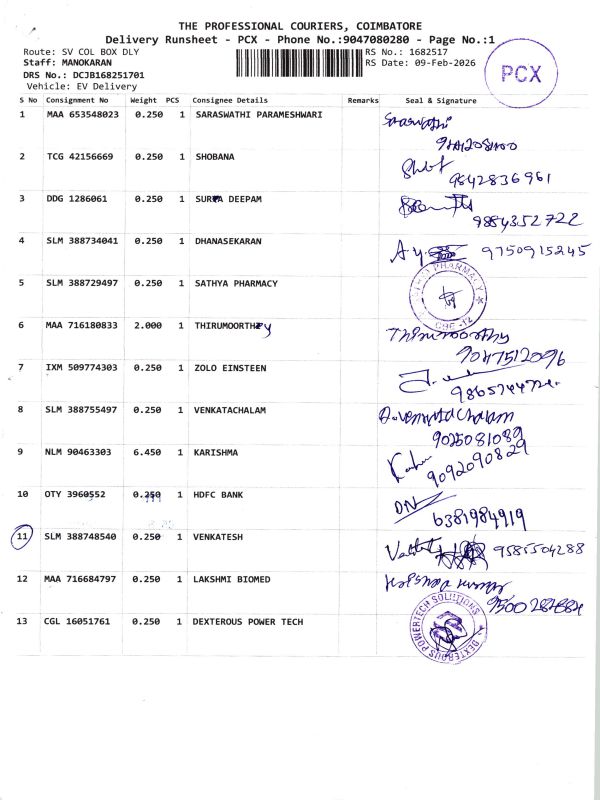 THE PROFESSIONAL COURIERS, COIMBATORE
Delivery Runsheet - PCX - Phone No.:9047080280 - Page No.:1
Route: SV COL BOX DLY
RS No.: 1682517
Staff: MANOKARAN
RS Date: 09-Feb-2026
DRS No.: DCJB168251701
Vehicle: EV Delivery
PCX
S No Consignment No Weight PCS Consignee Details Remarks Seal & Signature
1 MAA 653548023 0.250 1 SARASWATHI PARAMESHWARI
2 TCG 42156669 0.250 1 SHOBANA
9842836961
3 DDG 1286061 0.250 1 SURYA DEEPAM
9884352722
4 SLM 388734041 0.250 1 DHANASEKARAN
9750915245
5 SLM 388729497 0.250 1 SATHYA PHARMACY
PHARMACY
CBE-12
6 MAA 716180833 2.000 1 THIRUMOORTHY
Thirumoorthy
9047512096
7 IXM 509774303 0.250 1 ZOLO EINSTEEN
8 SLM 388755497 0.250 1 VENKATACHALAM
9025081089
9 NLM 90463303 6.450 1 KARISHMA
9092090829
10 OTY 3960552 0.250 1 HDFC BANK
6381984919
11 SLM 388748540 0.250 1 VENKATESH
9585504288
12 MAA 716684797 0.250 1 LAKSHMI BIOMED
13 CGL 16051761 0.250 1 DEXTEROUS POWER TECH
DEXTEROUS POWERTECH SOLUTIONS